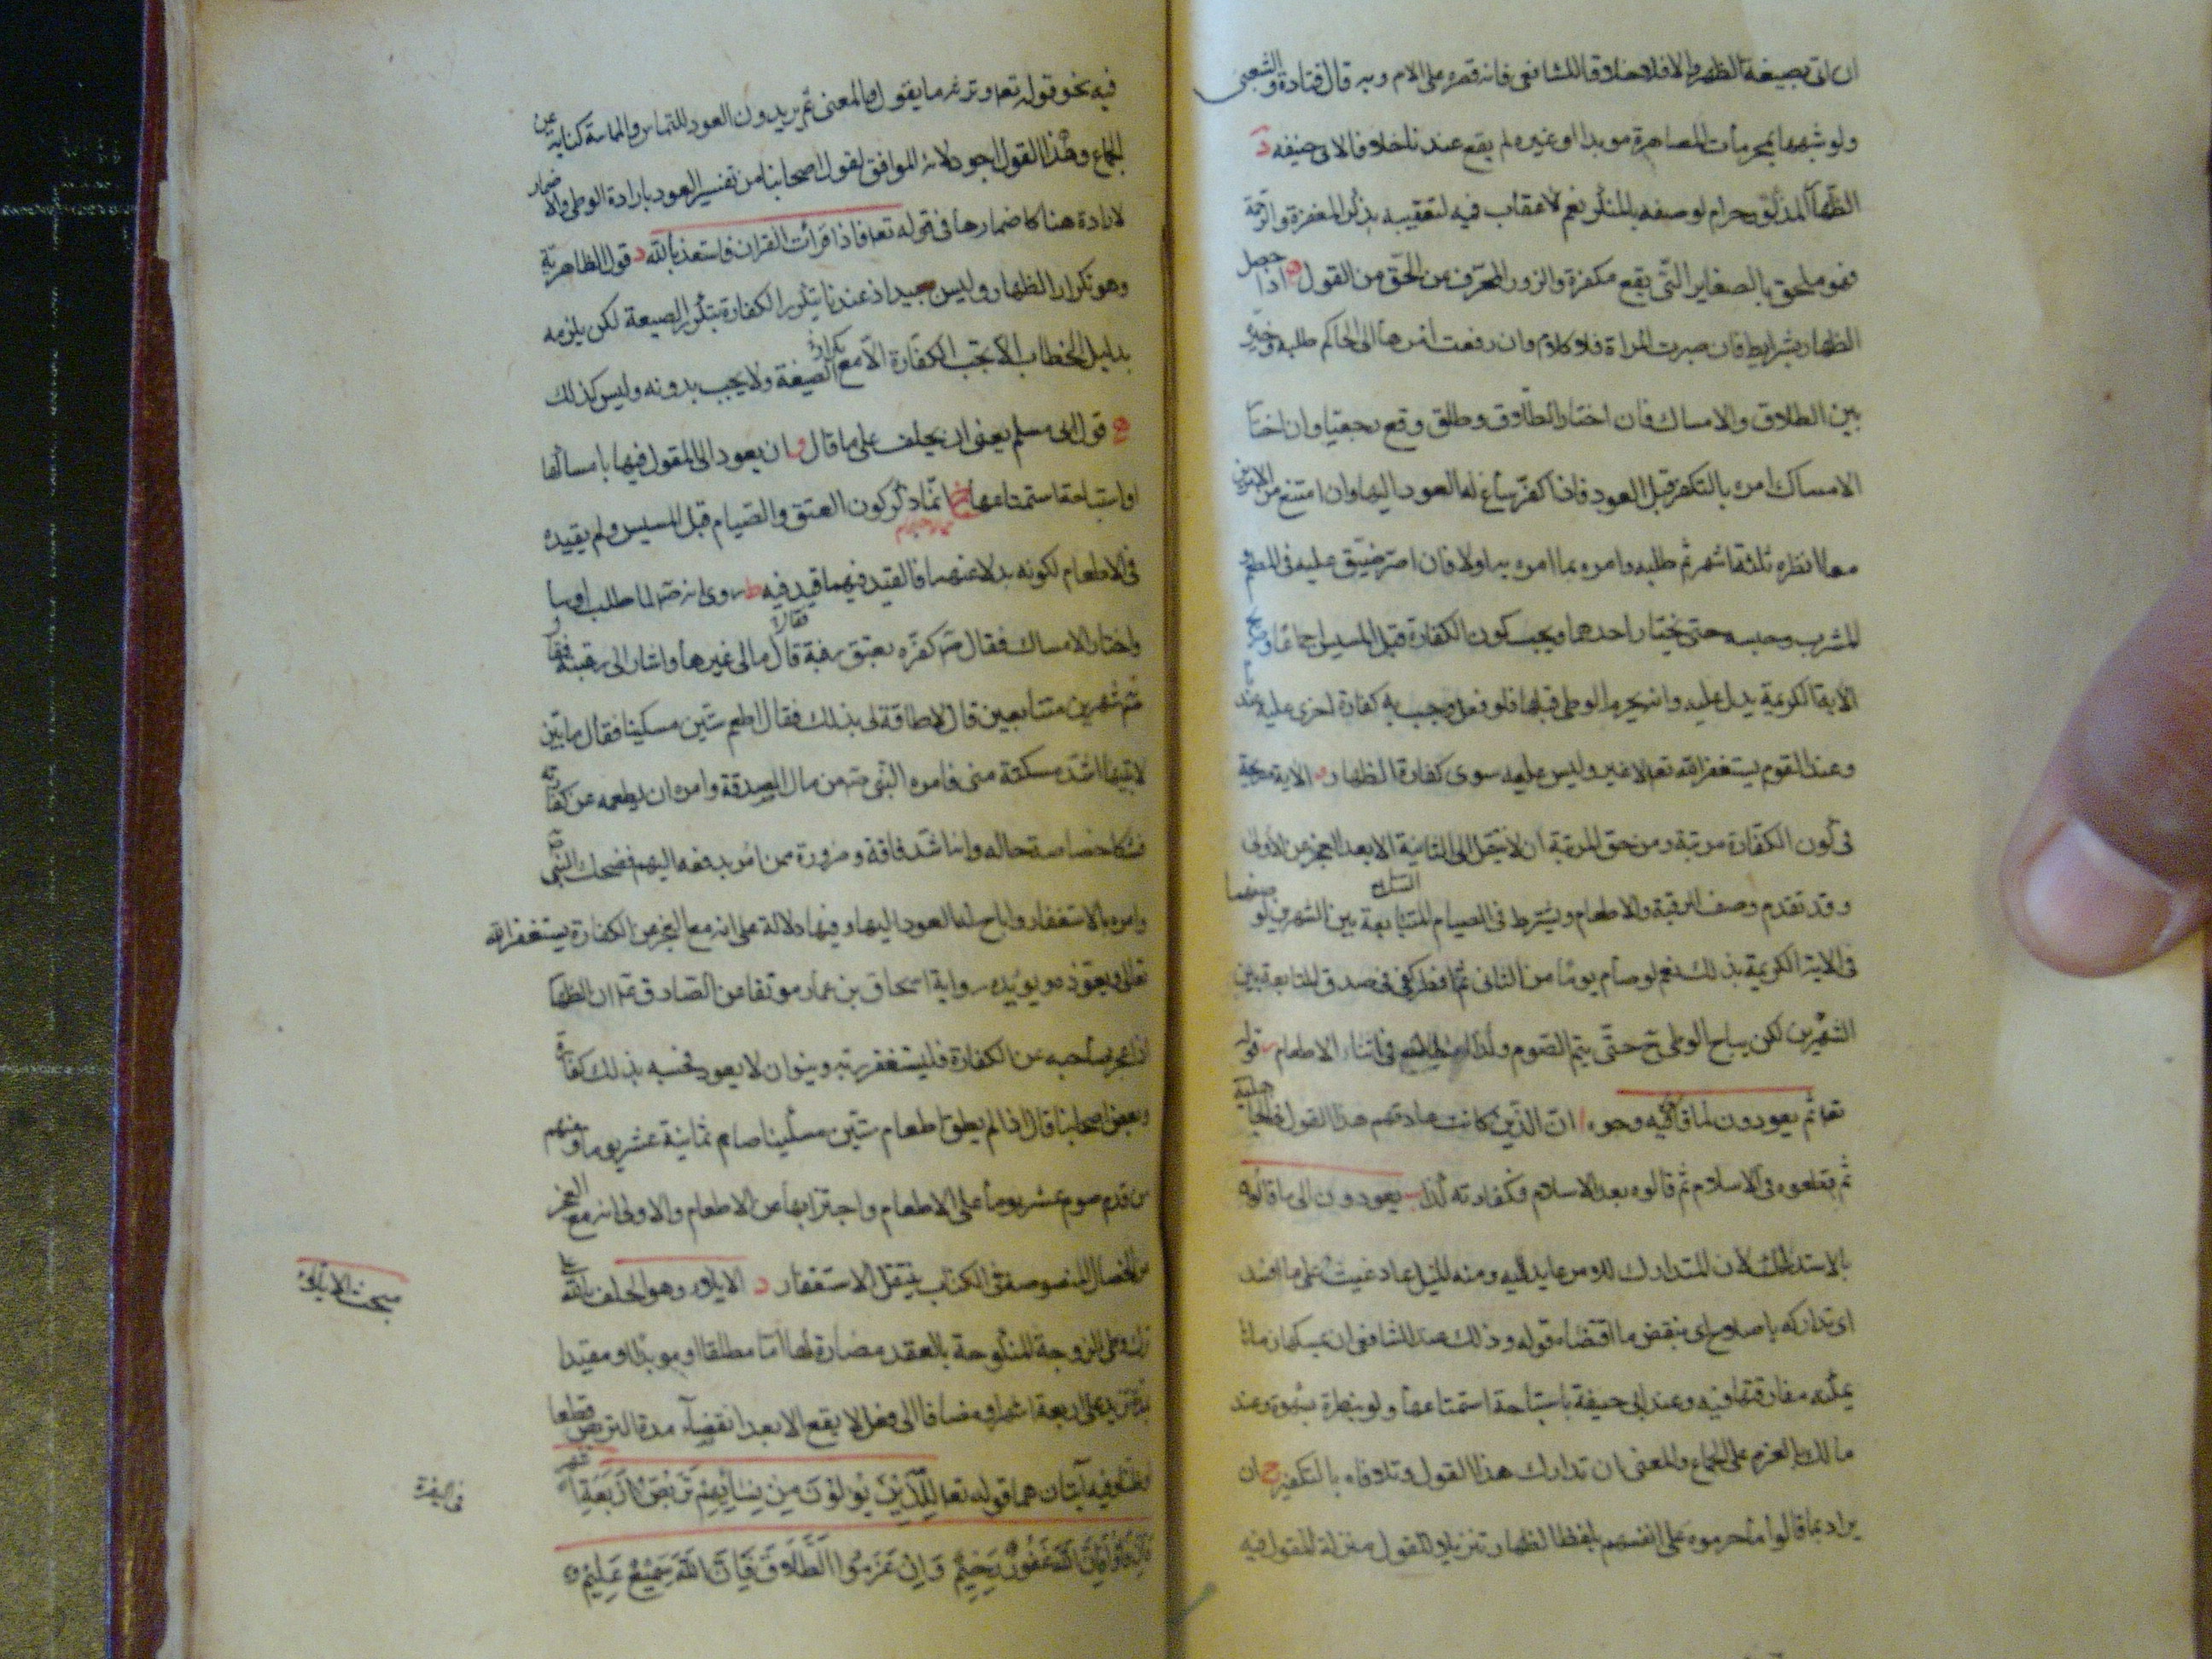 ان اتى بصيغة الظهر والا فلا خلافا للشافعى فانه قصره على الام وبه قال قتادة والشعبى
ولو شبهها بمحرمات المصاهرة موبدا او غيره لم يقع عندنا خلافا لابى حنيفه د
الظهار المذكور حرام لوصفه بالمنكر نعم لا عقاب فيه لتعقيبه بذكر المغفرة والرحمة
فهو ملحق بالصغاير التى يقع مكفرة والزور المحرف من الحق من القول ه اذا حصل
الظهار بشرايطه فان صبرت المراة فلا كلام وان رفعت امرها الى الحاكم طلبه وخيره
بين الطلاق والامساك فان اختار الطلاق وطلق وقع رجعيا وان اختا
الامساك امره بالتكفير قبل العود فاذا كفر ساغ له العود اليها وان امتنع من الامرين
معا انظره ثلثة اشهر ثم طلبه وامره بما امره به اولا فان اصر ضيق عليه فى المطعم و
المشرب وحبسه حتى يختار احدهما ويجب كون الكفارة قبل المسيس اجماعا
الاية الكريمة يدل عليه وانه يحرم الوطى قبلها فلو فعل وجب به كفارة اخرى عليه عند
وعند القوم يستغفر الله تعا لا غير وليس عليه سوى كفارة الظهار الاية صريحة
فى كون الكفارة مرتبة ومن حق المرتبة ان لا ينتقل الى الثانية الا بعد العجز من الاولى
وقد تقدم وصف الرقبة والاطعام ويشترط فى الصيام المتتابعة بين الشهرين
فى الاية الكريمة بذلك نعم لو صام يوما من الثانى ثم افطر كفى فى صدق المتابعة بين
الشهرين لكن يباح الوطى ح حتى يتم الصوم وكذا فى اثناء الاطعام قوله
تعا ثم يعودون لما قا فيه وجوه ا ان الذين كانت عادتهم هذا القول فى الجاهلية
ثم قطعوه فى الاسلام ثم قالوه بعد الاسلام فكفارته كذا ب يعودون الى ما قالوه
بالاستدراك لان المتدارك للامر عايد اليه ومنه المثل عاد غيث على ما افسد
اى تداركه باصلاح اى ينقض ما اقتضاه قوله وذلك عند الشافعى ان يمسكها زمانا
يمكنه مفارقتها فيه وعند ابى حنيفة باستباحة استمتاعها ولو بنظرة بشهوة وعند
مالك بالعزم على الجماع والمعنى ان تدارك هذا القول وتلافاه بالتكفير ج ان
يراد بما قالوا ما حرموه على انفسهم بلفظ الظهار تنزيلا للقول منزلة المقول فيه
فيه نحو قوله تعا ونرثه ما يقول والمعنى ثم يريدون العود للتماس والمماسة كناية عن
الجماع وهذا القول اجود لانه الموافق لقول اصحابنا من تفسير العود بارادة الوطى والاضمار
لارادة هنا كاضمارها فى قوله تعا فاذا قرأت القران فاستعذ بالله د قول الظاهرية
وهو تكرار الظهار وليس بجيد اذ عندنا يتكرر الكفارة بتكرر الصيغة لكن يلزمه
بدليل الخطاب الا تجب الكفارة الا مع تكرار الصيغة ولا يجب بدونه وليس كذلك
ه قول ابى مسلم يعنى ان يحلف على ما قال و ان يعود الى المقول فيها بامساكها
او استباحة استمتاعها انما ذكر كون العتق والصيام قبل المسيس ولم يقيده
فى الاطعام لكونه بدلا عنهما فالقيد فيهما قيد فيه ط روى انه ص لما طلب اوسا
واختار الامساك فقال ص كفره بعتق رقبة فقال مالى غيرها واشار الى رقبته فقا
صم شهرين متتابعين قال لا طاقة لى بذلك فقال اطعم ستين مسكينا فقال ما بين
لابتيها اشد مسكنة منى فامره النبى ص من مال الصدقة وامره ان يطعمه عن كفارته
فشكا خصاصة حاله وانه اشد فاقة وضرورة ممن امر بدفعه اليهم فضحك النبى ص
وامره بالاستغفار واباح له العود اليها وفيها دلالة على انه مع العجز عن الكفارة يستغفر الله
تعالى ويعود ويؤيده رواية اسحاق بن عمار موثقا عن الصادق ع ان الظها
اذا عجز صاحبه عن الكفارة فليستغفر ربه وينوى ان لا يعود فحسبه بذلك كفارة
وبعض اصحابنا قال اذا لم يطق اطعام ستين مسكينا صام ثمانية عشر يوما ومنهم
من قدم صوم عشر يوما على الاطعام واجتزا بها عن الاطعام والاولى انه مع العجز
من الخصال المنصوصة فى الكتاب ينتقل الاستغفار د الايلاء وهو الحلف بالله على
ترك وطى الزوجة المنكوحة بالعقد مضارة لها اما مطلقا او موبدا او مقيدا
بمدة تزيد على اربعة اشهر او مضافا الى فعل لا يقع الا بعد انقضاء مدة التربص قطعا
وفيه آيتان هما قوله تعا لِلَّذِينَ يُؤْلُونَ مِنْ نِسَائِهِمْ تَرَبُّصُ أَرْبَعَةِ أشهر
فَإِنْ فَاؤُا فَإِنَّ اللّٰهَ غَفُورٌ رَحِيمٌ وَإِنْ عَزَمُوا الطَّلَاقَ فَإِنَّ اللّٰهَ سَمِيعٌ عَلِيمٌ
مبحث الايلاء
فى البقرة